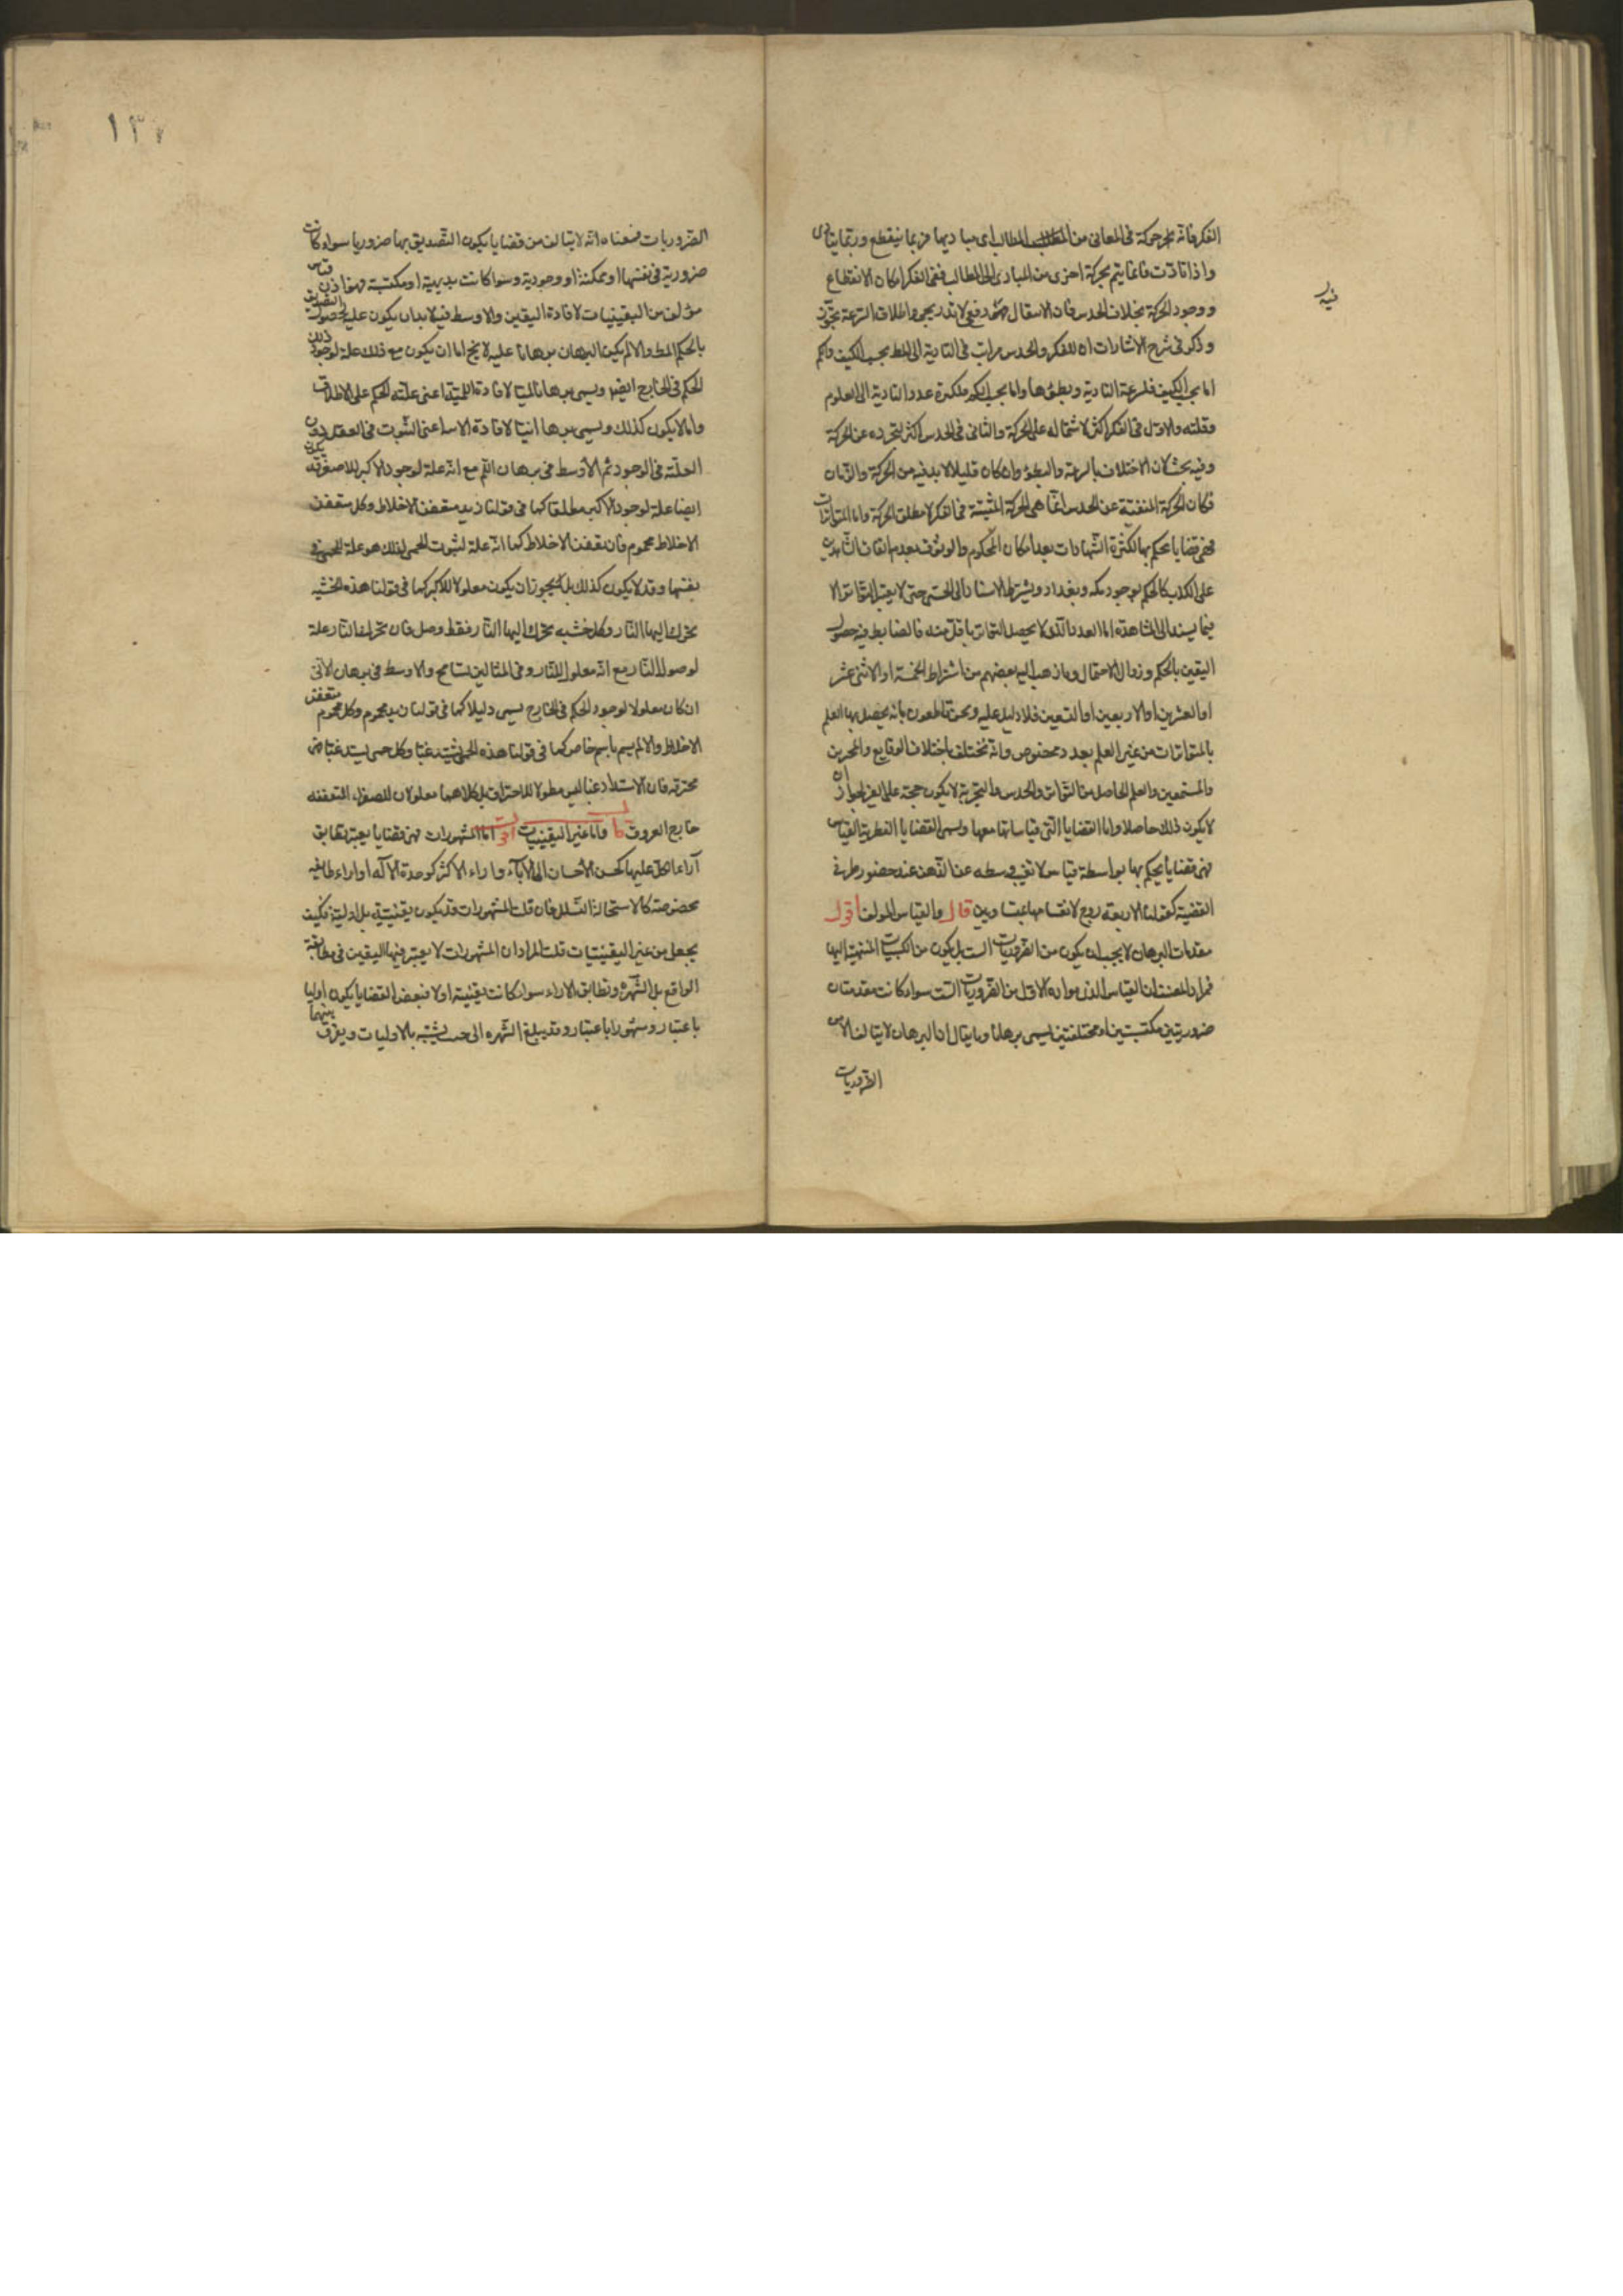 الفكر فانه حركة فى المعانى من المطالب الى مباديها فربما ينقطع وربما يتادى
واذا تادت فانما يتم بحركة اخرى من المبادى الى المطالب ففى الفكر امكان الانقطاع
ووجود الحركة بخلاف الحدس فان الانتقال فيه دفعى لا تدريجى واطلاق السرعة تجوز
وذكر فى شرح الاشارات ان للفكر والحدس مراتب فى التادية الى المط بحسب الكيف والكم
اما بحسب الكيف فلسرعة التادية وبطئها واما بحسب الكم فلكثرة عدد التادية الى المعلوم
وقلته والاول فى الفكر اكثر لاشتماله على الحركة والثانى فى الحدس اكثر لتجرده عن الحركة
وفيه بحث لان الاختلاف بالسرعة والبطؤ وان كان قليلا لا بد فيه من الحركة والزمان
فكان الحركة المنفية عن الحدس انما هى الحركة المثبتة فى الفكر لا مطلق الحركة واما المتواترات
فهى قضايا يحكم بها لكثرة الشهادات بعد امكان المحكوم والوثوق بعدم اتفاق الشاهدين
على الكذب كالحكم بوجود مكه وبغداد ويشترط الاستناد الى الحس حتى لا يعتبر التواتر الا
فيما يستند الى المشاهدة اما العدد الذى لا يحصل التواتر باقل منه فالضابط فيه حصول
اليقين بالحكم وزوال الاحتمال وما ذهب اليه بعضهم من اشتراط الخمسة او الاثنى عشر
او العشرين او الاربعين او السبعين فلا دليل عليه ونحن قاطعون بانه يحصل بها العلم
بالمتواترات من غير العلم بعدد مخصوص وانه تختلف باختلاف الوقايع والمخبرين
والمستمعين والعلم الحاصل من التواتر والحدس والتجربة لا يكون حجة على الغير لجواز ان
لا يكون ذلك حاصلا واما القضايا التى قياساتها معها ويسمى القضايا الفطرية القياس
فهى قضايا يحكم بها بواسطة قياس لا تغيب وسطه عن الذهن عند حضور طرفى
القضية كقولنا الاربعة زوج لانقسامها بمتساويين قال والقياس المولف اقول
مقدمات البرهان لا يجب ان يكون من الضروريات الست بل يكون من الكسبيات المنتهية اليها
فمراد المصنف ان القياس الذى مواده الاول من الضروريات الست سواء كانت مقدمتان
ضروريتين مكتسبتين او مختلفتين يسمى برهانا وما يقال ان البرهان لا يتالف الا من
الضروريات
فيه
١٣٧
الضروريات فمعناه انه لا يتالف من قضايا يكون التصديق بها ضروريا سواء كانت
ضرورية فى نفسها او ممكنة او وجودية وسواء كانت بديهية او مكتسبة فهو اذن قياس
مؤلف من اليقينيات لافادة اليقين والاوسط فيه لا بد ان يكون علة لحصول التصديق
بالحكم المط والا لم يكن البرهان برهانا عليه لا يخ اما ان يكون مع ذلك علة لوجود ذلك
الحكم فى الخارج ايضا ويسمى برهانا لميا لافادة اللمية اعنى علته الحكم على الاطلاق
واما لا يكون كذلك ويسمى برهانا انيا لافادة الانية اعنى الثبوت فى العقل دون
العلة فى الوجود ثم الاوسط فى برهان اللم مع انه علة لوجود الاكبر للاصغر قد يكون
ايضا علة لوجود الاكبر مطلقا كما فى قولنا زيد متعفن الاخلاط وكل متعفن
الاخلاط محموم فان تعفن الاخلاط كما انه علة لثبوت الحمى لذلك هو علة للحمى فى
نفسها وقد لا يكون كذلك بل يجوز ان يكون معلولا للاكبر كما فى قولنا هذه الخشبة
تحرك اليها النار وكل خشبه تحرك اليها النار فقط وصل فان تحرك النار علة
لوصول النار مع انه معلول للنار وفى المثالين تسامح والاوسط فى برهان الانى
ان كان معلولا لوجود الحكم فى الخارج يسمى دليلا كما فى قولنا زيد محموم وكل محموم متعفن
الاخلاط والا لم يسم باسم خاص كما فى قولنا هذه الحمى تشتد غبا وكل حمى تشتد غبا فهى
محترقة فان الاشتداد غبا ليس معلولا للاحتراق بل كلاهما معلولان للصفراء المتعفنه
خارج العروق قا واما غير اليقينيات اقول اما المشهورات فهى قضايا يعتبر تطابق
آراء الكل عليها كحسن الاحسان الى الآباء واراء الاكثر كوحدة الاله او اراء طائفه
مخصوصة كالاستحالة التسلسل فان قلت المشهورات قد يكون يقينية بل اولية فكيف
يجعل من غير اليقينيات قلت المراد ان المشهورات لا يعتبر فيها اليقين فى مطابقة
الواقع بل الشهرة وتطابق الاراء سواء كانت يقينية او لا فبعض القضايا يكون اوليا
باعتبار ومشهورا باعتبار وقد يبلغ الشهره الى حيث يشتبه بالاوليات ويفرق بينهما